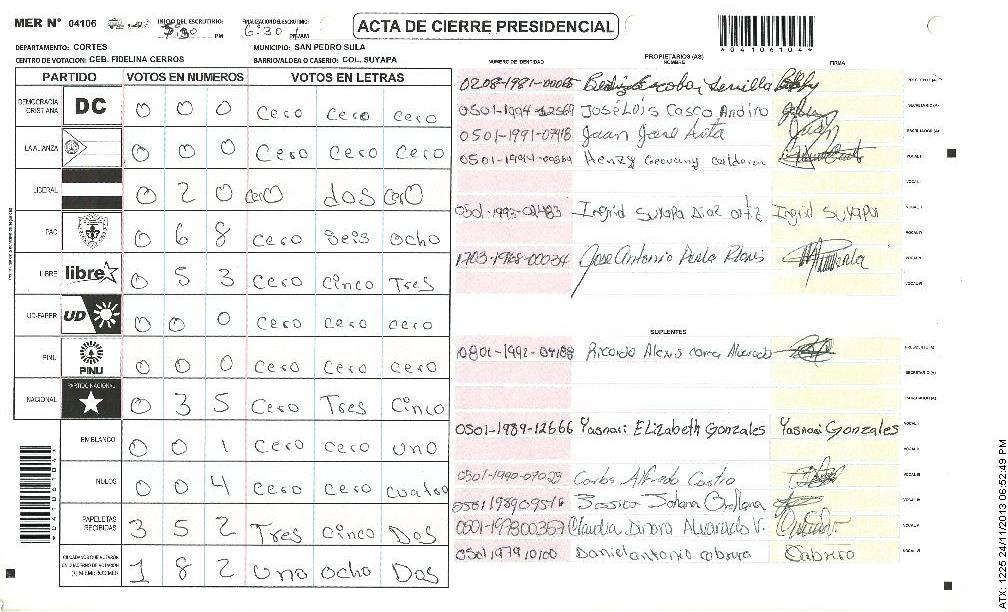 MER N° 04106 INICIO DEL ESCRUTINIO: 5:30 PM FINALIZACION DEL ESCRUTINIO: 6:30 PM/AM ACTA DE CIERRE PRESIDENCIAL 04106104
DEPARTAMENTO: CORTES MUNICIPIO: SAN PEDRO SULA
CENTRO DE VOTACION: CEB. FIDELINA CERROS BARRIO/ALDEA O CASERIO: COL. SUYAPA
PARTIDO VOTOS EN NUMEROS VOTOS EN LETRAS
DEMOCRACIA CRISTIANA DC 0 0 0 Cero Cero Cero
LA ALIANZA 0 0 0 Cero Cero Cero
LIBERAL 0 2 0 cero dos cero
PAC 0 6 8 Cero Seis Ocho
LIBRE libre 0 5 3 Cero Cinco Tres
UD-FAPER UD 0 0 0 Cero Cero Cero
PINU PINU 0 0 0 Cero Cero Cero
NACIONAL PARTIDO NACIONAL 0 3 5 Cero Tres Cinco
EN BLANCO 0 0 1 Cero Cero Uno
NULOS 0 0 4 Cero Cero Cuatro
PAPELETAS RECIBIDAS 3 5 2 Tres Cinco Dos
CIUDADANOS QUE VOTARON EN CUADERNO DE VOTACION (+) MIEMBROS MER 1 8 2 Uno Ocho Dos
PROPIETARIOS (AS)
NUMERO DE IDENTIDAD NOMBRE FIRMA
0208-1981-00065 PRESIDENTE (A)
0501-1994-12569 José Lois Casco Andino SECRETARIO (A)
0501-1991-07418 Juan Jose ESCRUTADOR (A)
0501-1994-00569 Henzy Geovany Calderon VOCAL I
VOCAL II
0501-1993-01483 Ingrid Suyapa Diaz ortiz Ingrid Suyapa
1703-1968-00034 Jose Antonio Perla
SUPLENTES
0801-1992-04188 Ricardo Alexis Alvarado PRESIDENTE (A)
SECRETARIO (A)
ESCRUTADOR (A)
0501-1989-12666 Yasnari Elizabeth Gonzales Yasnari Gonzales VOCAL I
VOCAL II
0501-1990-07025 Carlos Alfredo Castro VOCAL III
0501198909516 Jessica Johana Orellana
0501-197800357 Claudia Dinora Alvarado V.
0501197910100 Daniel antonio cabrera Cabrera
ATX: 1225 24/11/2013 06:52:49 PM